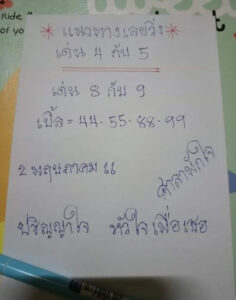 Ride
of you
* แนวทางเลขวิ่ง *
เด่น 4 กับ 5
เด่น 8 กับ 9
เบิ้ล = 44-55-88-99
2 พฤษภาคม 61
ศาลาพักใจ
ปริญญาใจ หัวใจเพื่อเธอ